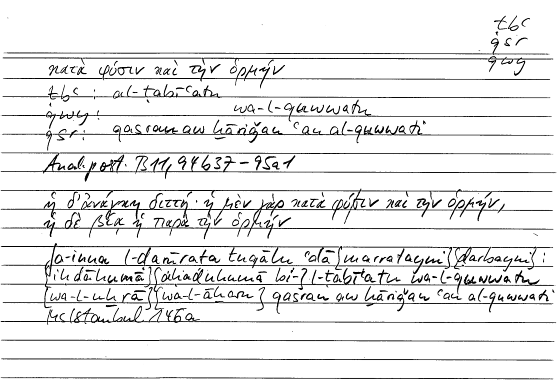 ṭbʿ
qsr
qwy
κατὰ φύσιν καὶ τὴν ὁρμήν
ṭbʿ : al-ṭabīʿatu
qwy : wa-l-quwwatu
qsr : qasran aw ḫāriǧan ʿan al-quwwati
Anal. post. B11, 94b37-95a1
ἡ δ'ἀνάγκη διττή· ἡ μὲν γὰρ κατὰ φύσιν καὶ τὴν ὁρμήν,
ἡ δὲ βίᾳ ἡ παρὰ τὴν ὁρμήν
fa-inna l-ḍarūrata tuqālu ʿalā {marratayni}{ḍarbayni} :
{iḥdāhumā}{aḥaduhumā bi-} l-ṭabīʿatu wa-l-quwwatu
{wa-l-uḫrā}{wa-l-āḫaru} qasran aw ḫāriǧan ʿan al-quwwati
Ms Istanbul 146a